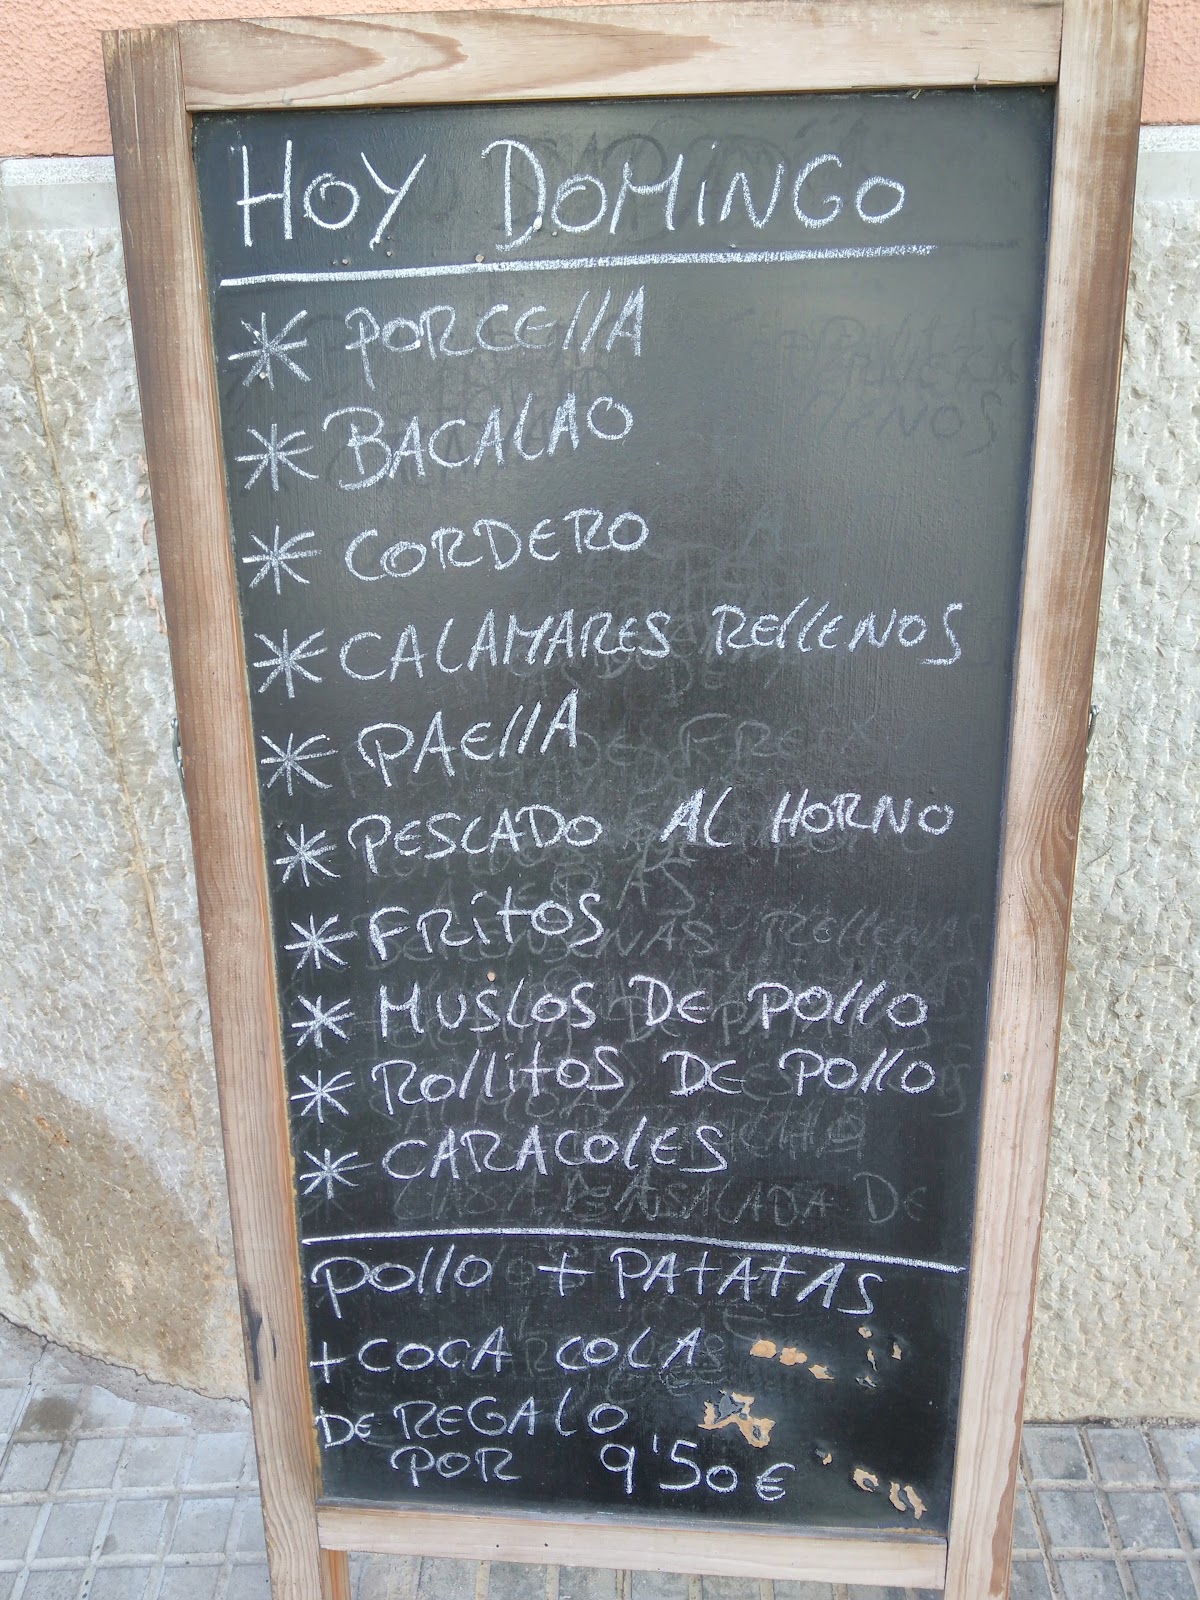 HOY DOMINGO
* PORCELLA
* BACALAO
* CORDERO
* CALAMARES RELLENOS
* PAELLA
* PESCADO AL HORNO
* FRITOS
* MUSLOS DE POLLO
* ROLLITOS DE POLLO
* CARACOLES
POLLO + PATATAS
+ COCA COLA
DE REGALO
POR 9'50€